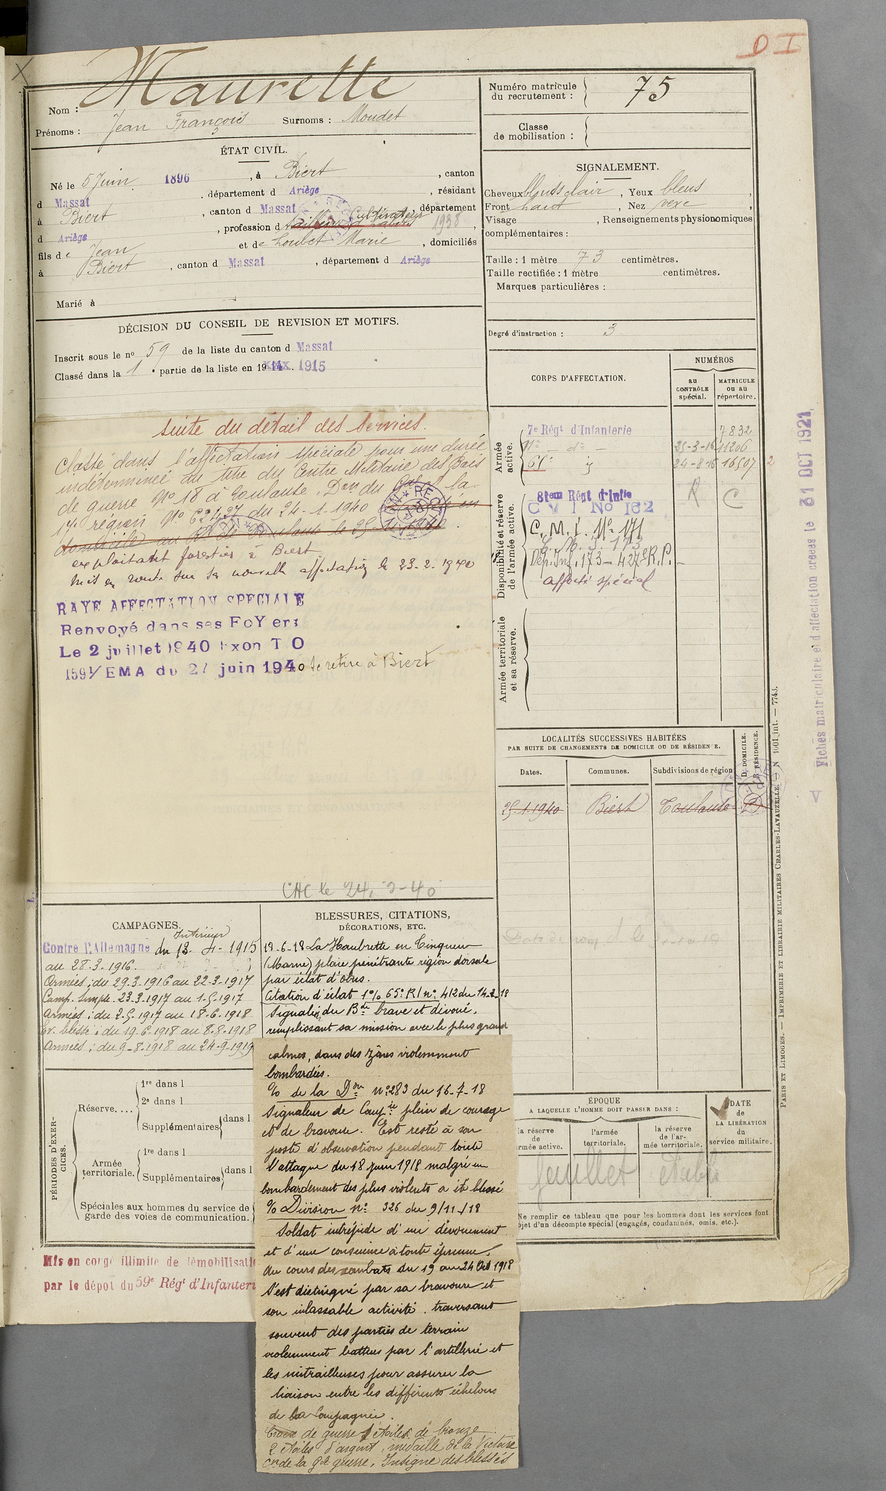 D I
Maurette
Nom :
Prénoms : Jean François Surnoms : Moudet
Numéro matricule du recrutement : 75
Classe de mobilisation :
ÉTAT CIVIL.
Né le 5 Juin 1896, à Biert, canton
d Massat, département d Ariège, résidant
à Biert, canton d Massat, département
d Ariège, profession d Cultivateur 1938
fils de Jean et de Loubet Marie, domiciliés
à Biert, canton d Massat, département d Ariège
Marié à
SIGNALEMENT.
Cheveux blonds clair, Yeux bleus
Front haut, Nez
Visage , Renseignements physionomiques
complémentaires :
Taille : 1 mètre 73 centimètres.
Taille rectifiée : 1 mètre centimètres.
Marques particulières :
Degré d'instruction : 3
DÉCISION DU CONSEIL DE REVISION ET MOTIFS.
Inscrit sous le no 59 de la liste du canton d Massat
Classé dans la 1e partie de la liste en 1915
CORPS D'AFFECTATION.
NUMÉROS
AU CONTRÔLE spécial.
MATRICULE OU AU répertoire.
Armée active.
7e Régt d'Infanterie 7832
25-3-16 11206
24-8-16 16507
R C
Disponibilité et réserve de l'armée active.
81eme Régt d'Infie
C M I No 162
C. M. I. No 171
Dép. Inf. 173 - 427e R.P.
affecté spécial
Armée territoriale et sa réserve.
Suite du détail des Services.
Classé dans l'affectation spéciale pour une durée
indéterminée au titre du Centre Militaire des Bois
de guerre No 18 à Toulouse. Don du Gal la
17e région No du 24-1-1940
exploitant forestier à Biert
mis en route sur sa nouvelle affectation le 23-2-1940
RAYE AFFECTATION SPECIALE
Renvoyé dans ses FoYers
Le 2 juillet 1940 Exon T O
1591/EMA du 27 juin 1940 se retire à Biert
LOCALITÉS SUCCESSIVES HABITÉES
PAR SUITE DE CHANGEMENTS DE DOMICILE OU DE RÉSIDENCE.
Dates.
Communes.
Subdivisions de région
D. DOMICILE.
R. RÉSIDENCE.
25-1-1940 Biert Toulouse D
CAMPAGNES.
Intérieur
Contre l'Allemagne du 12-4-1915
au 28-3-1916.
Armées : du 29.3.1916 au 22-3-1917
Camp. simple. 23.3.1917 au 1-5-1917
Armées : du 2.5.1917 au 18-6-1918
Ev. blessé : du 19.6.1918 au 8.8.1918
Armées : du 9-8.1918 au 24-9-1919
BLESSURES, CITATIONS, DÉCORATIONS, ETC.
(Marne) plaie pénétrante région dorsale
par éclat d'obus.
Signaleur du Bon brave et dévoué,
remplissant sa mission avec le plus grand
calme, dans des zônes violemment
bombardées.
% de la Don no 283 du 16-7-18
Signaleur de Compie plein de courage
et de bravoure. Est resté à son
poste d'observation pendant toute
l'attaque du 18 juin 1918 malgré un
bombardement des plus violents a été blessé
% Division no 326 du 9/11/18
Soldat intrépide d'un dévouement
et d'une conscience à toute épreuve.
Au cours des combats du 19 au 24 Oct 1918
s'est distingué par sa bravoure et
son inlassable activité. traversant
souvent des parties de terrain
violemment battues par l'artillerie et
les mitrailleuses pour assurer la
liaison entre les différents échelons
de la Compagnie.
Croix de guerre étoiles de bronze
2 étoiles d'argent, médaille de la Victoire
Cve de la gde guerre, Insigne des blessés
PÉRIODES D'EXERCICES.
Réserve....
1re dans l
2e dans l
Supplémentaires dans l
Armée territoriale.
1re dans l
Supplémentaires dans l
Spéciales aux hommes du service de garde des voies de communication.
ÉPOQUE
A LAQUELLE L'HOMME DOIT PASSER DANS :
la réserve de l'armée active.
l'armée territoriale.
la réserve de l'armée territoriale.
DATE de LA LIBÉRATION du service militaire.
Ne remplir ce tableau que pour les hommes dont les services font
objet d'un décompte spécial (engagés, condamnés, omis, etc.).
Mis en congé illimité de démobilisation
par le dépôt du 59e Régt d'Infanterie
Fiches matriculaire et d'affectation créées le 31 OCT 1921.
V
PARIS ET LIMOGES. — IMPRIMERIE ET LIBRAIRIE MILITAIRES CHARLES-LAVAUZELLE